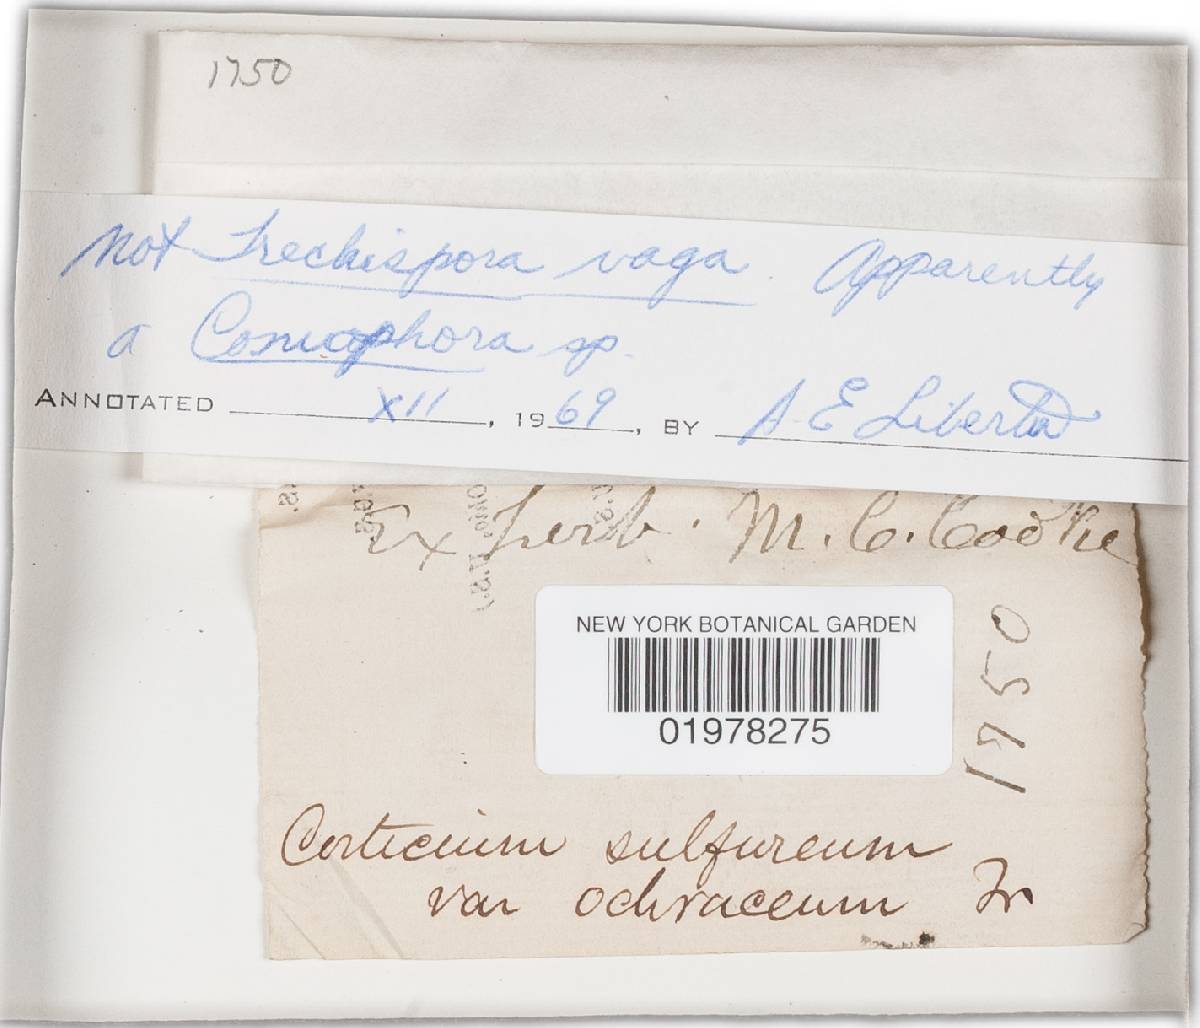 1750
Not Trechispora vaga. Apparently
a Coniophora sp.
ANNOTATED XII, 1969, BY A E Liberta
Ex Herb. M. C. Cooke
NEW YORK BOTANICAL GARDEN
01978275
1750
Corticium sulfureum
var ochraceum Fr